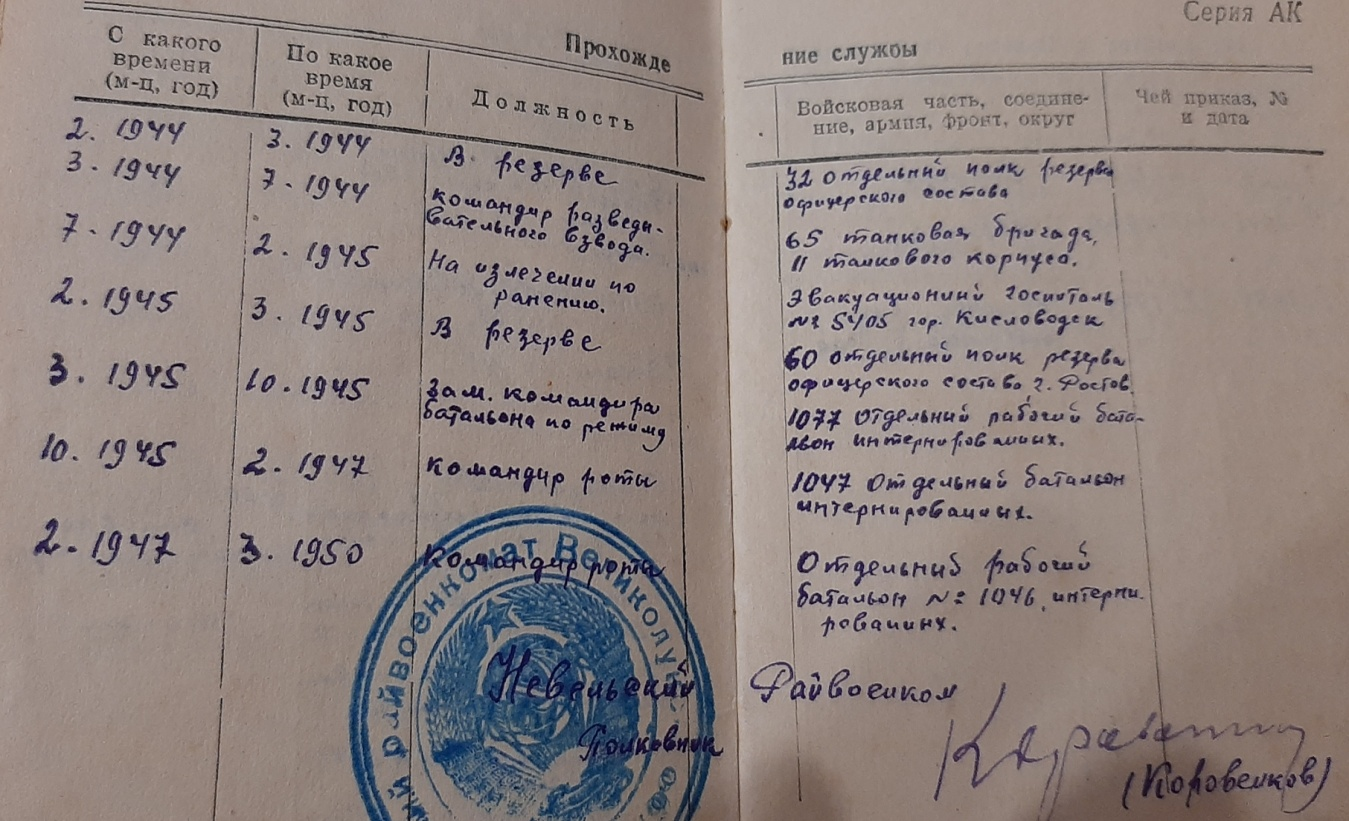 Серия АК
Прохожде
ние службы
С какого
времени
(м-ц, год)
По какое
время
(м-ц, год)
Должность
Войсковая часть, соедине-
ние, армия, фронт, округ
Чей приказ, №
и дата
2. 1944
3. 1944
В резерве
32 отдельный полк резерва
офицерского состава
3. 1944
7 - 1944
командир разведы-
вательного взвода.
65 танковая бригада,
11 танкового корпуса.
7 - 1944
2. 1945
На излечении по
ранению.
Эвакуационный госпиталь
№ 5405 гор. Кисловодск
2. 1945
3. 1945
В резерве
60 отдельный полк резерва
офицерского состава г. Ростов.
3. 1945
10. 1945
Зам. командира
батальона по режиму
1077 отдельный рабочий бата-
льон интернированных.
10. 1945
2. 1947
командир роты
1047 Отдельный батальон
интернированных.
2. 1947
3. 1950
Командир роты
Отдельный рабочий
батальон № 1046, интерни-
рованных.
райвоенкомат Великолу
Невельский Райвоенком
Полковник
(Коровенков)